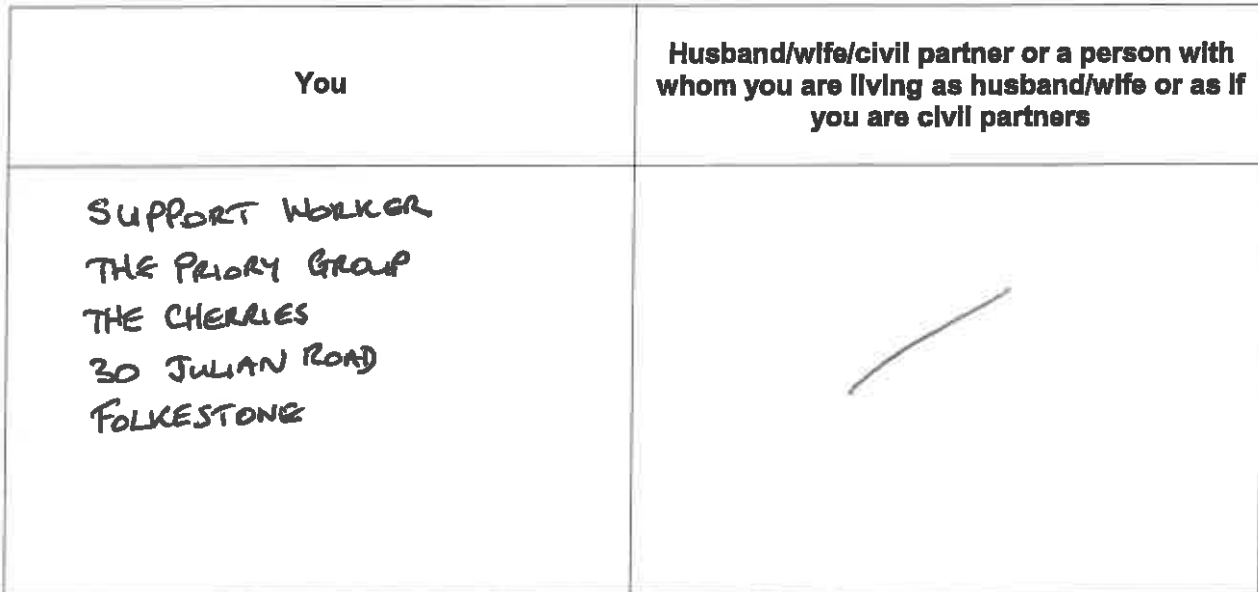 You
Husband/wife/civil partner or a person with
whom you are living as husband/wife or as if
you are civil partners
SUPPORT WORKER
THE PRIORY GROUP
THE CHERRIES
30 JULIAN ROAD
FOLKESTONE